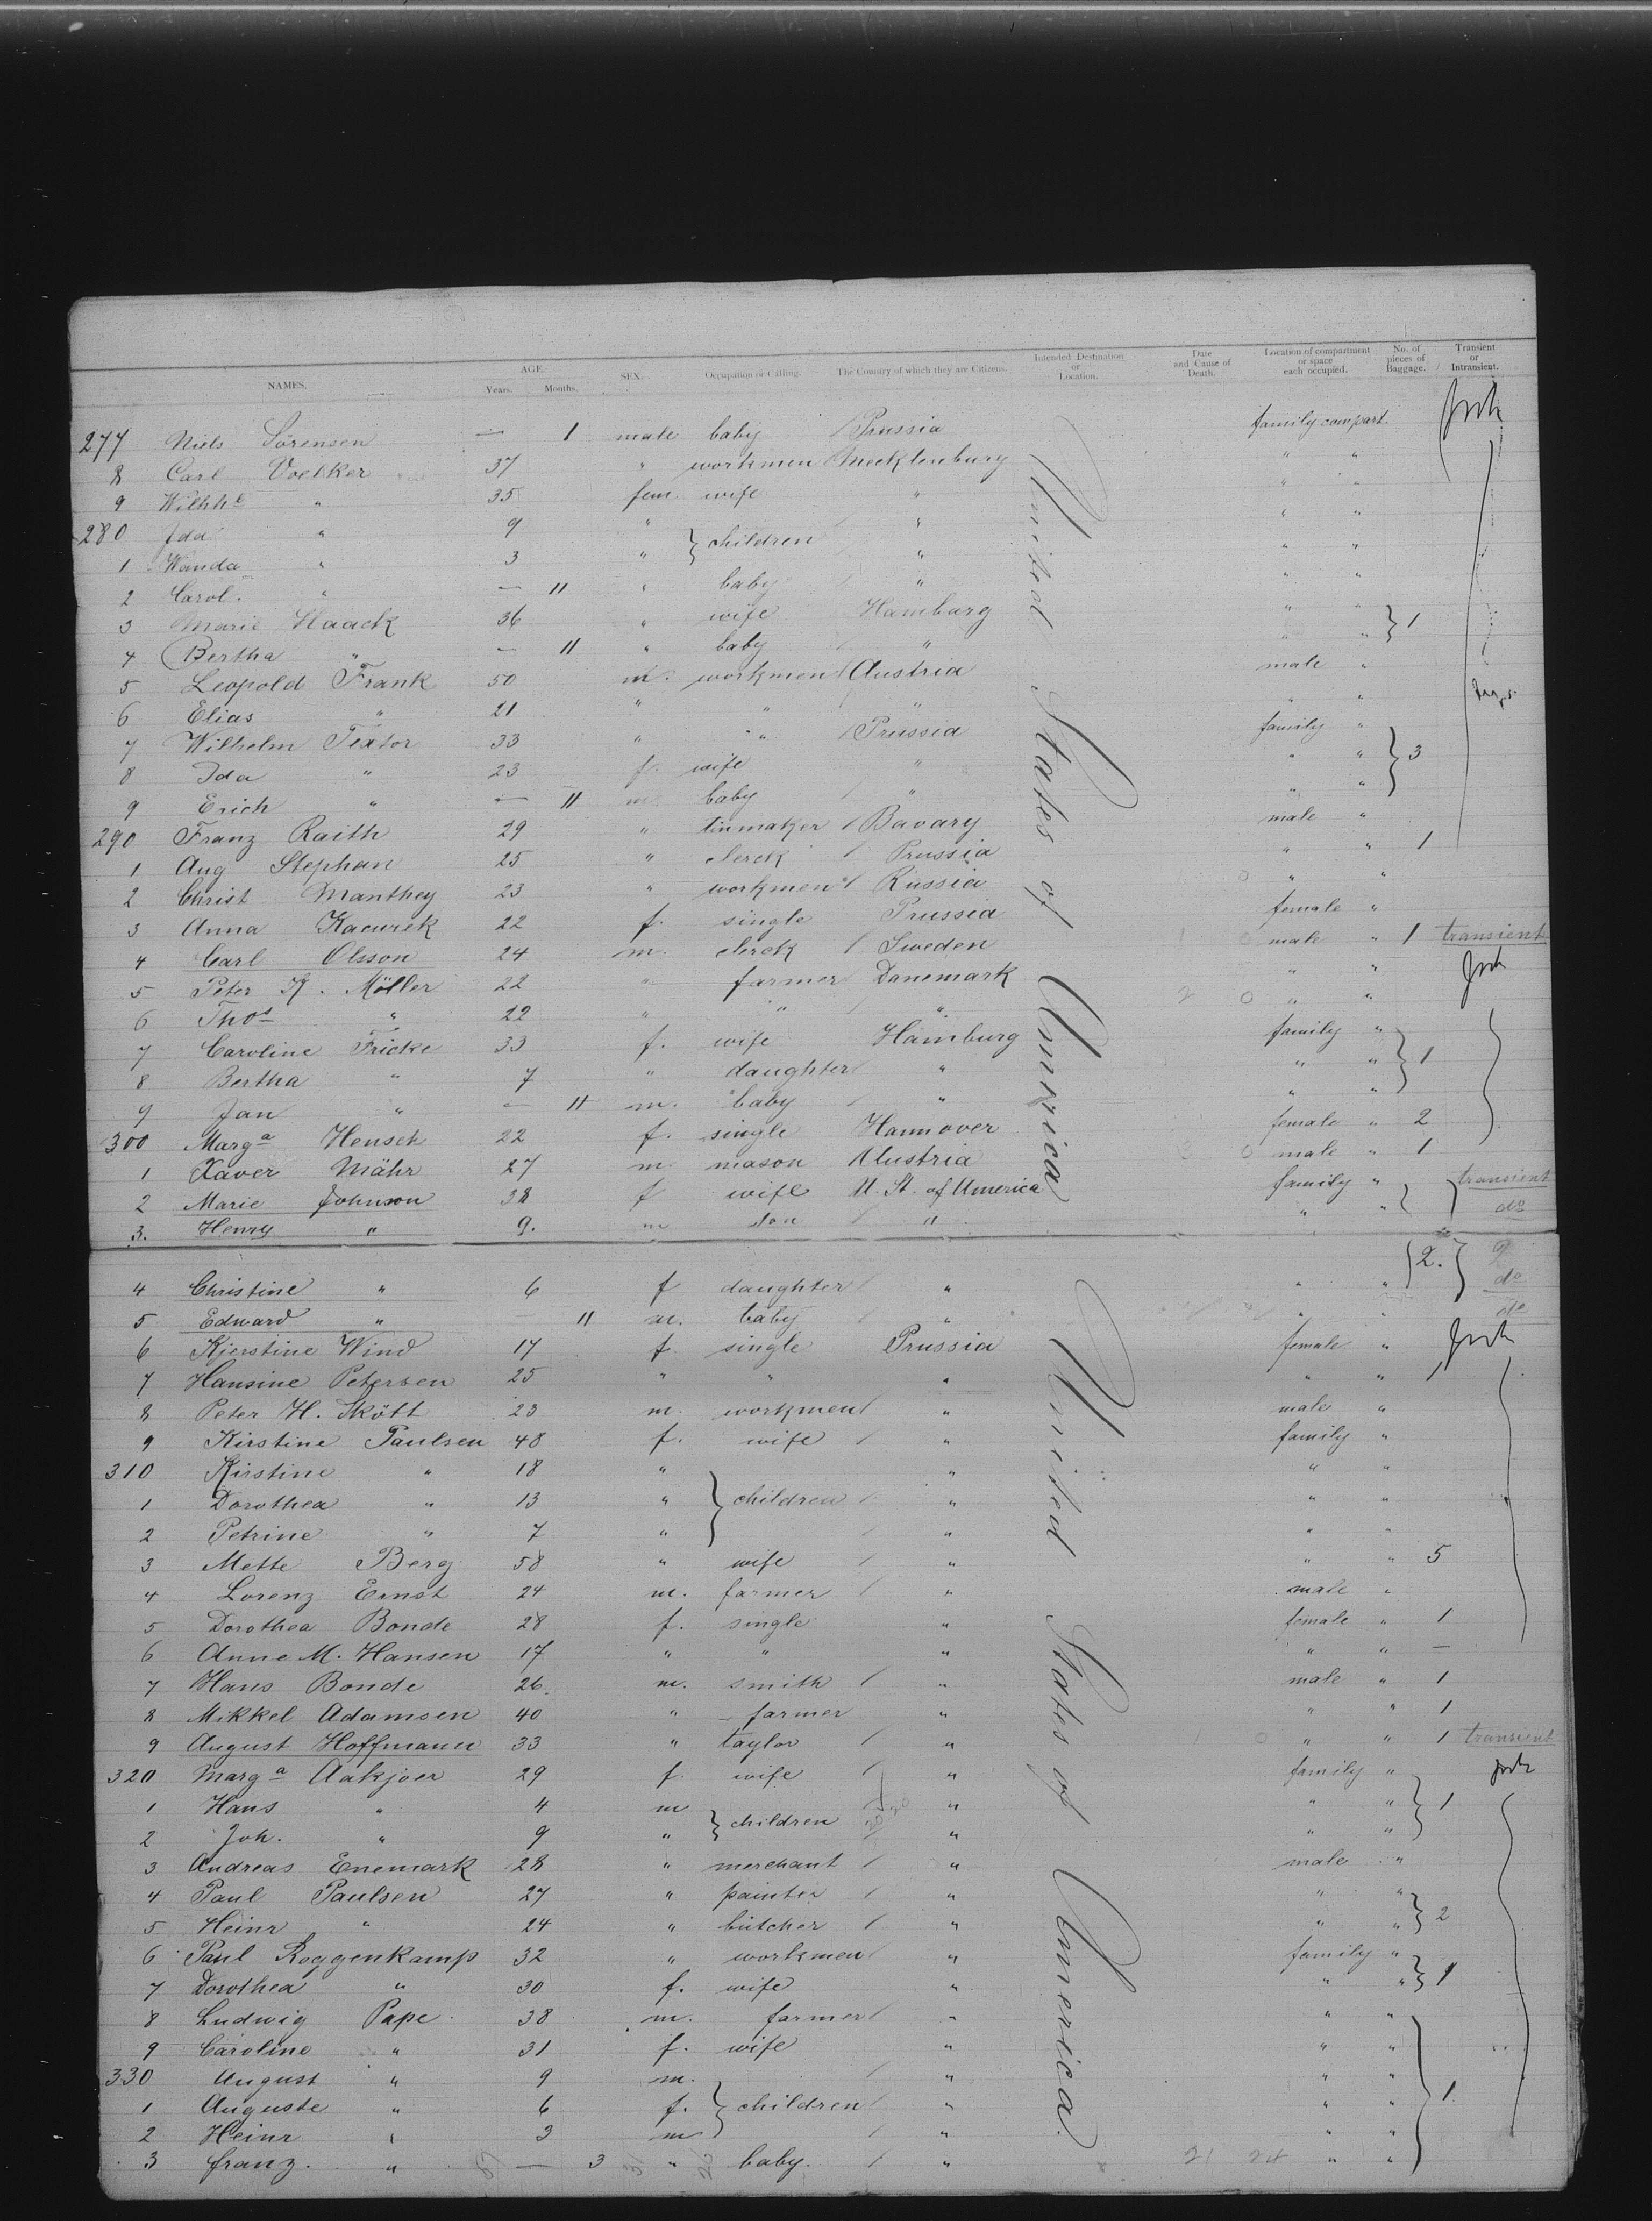 NAMES. AGE. Years. Months. SEX. Occupation or Calling. The Country of which they are Citizens. Intended Destination or Location. Date and Cause of Death. Location of compartment or space each occupied. No. of pieces of Baggage. Transient or Intransient.
277 Niels Sörensen — 1 male baby Prussia family compart.
8 Carl Voelker 37 " workmen Mecklenburg " "
9 Wilhhe " 35 fem. wife " " "
280 Ida " 9 " } children " " "
1 Wanda " 3 " " " "
2 Carol. " — 11 " baby " " "
3 Marie Haack 36 " wife Hamburg " " } 1
4 Bertha " — 11 " baby " " "
5 Leopold Frank 50 m. workmen Austria male "
6 Elias " 21 " " " " "
7 Wilhelm Textor 33 " " Prussia family "
8 Ida " 23 f. wife " " " } 3
9 Erich " — 11 m baby " " "
290 Franz Raith 29 " tinmaker Bavary male "
1 Aug Stephan 25 " clerck Prussia " " 1
2 Christ Manthey 23 " workmen Russia " "
3 Anna Kacurek 22 f. single Prussia female "
4 Carl Olsson 24 m. clerck Sweden male " 1 transient
5 Peter K. Möller 22 " farmer Danemark " "
6 Thos " 22 " " " " "
7 Caroline Fricke 33 f. wife Hamburg family "
8 Bertha " 7 " daughter " " " } 1
9 Jan " — 11 m. baby " " "
300 Marga Hensch 22 f. single Hannover female " 2
1 Xaver Mähr 27 m. mason Austria male " 1
2 Marie Johnson 38 f wife U. St. of America family " transient
3. Henry " 9. m son " " " do
4 Christine " 6 f daughter " " " } 2. } do
5 Edward " — 11 m. baby " " " do
6 Kierstine Wind 17 f. single Prussia female "
7 Hansine Petersen 25 " " " " " 1
8 Peter H. Skött 23 m. workmen " male "
9 Kirstine Paulsen 48 f. wife " family "
310 Kirstine " 18 " " " "
1 Dorothea " 13 " } children " " "
2 Petrine " 7 " " " "
3 Mette Berg 58 " wife " " " 5
4 Lorenz Ernst 24 m. farmer " male "
5 Dorothea Bonde 28 f. single " female " 1
6 Anne M. Hansen 17 " " " " " —
7 Hans Bonde 26. m. smith " male " 1
8 Mikkel Adamsen 40 " farmer " " " 1
9 August Hoffmann 33 " taylor " " " 1 transient
320 Marga Aakjoer 29 f. wife " family "
1 Hans " 4 m } children " " " } 1
2 Joh. " 9 " " " "
3 Andreas Enemark 28 " merchant " male "
4 Paul Paulsen 27 " painter " " "
5 Heinr " 24 " butcher " " " } 2
6 Paul Roggenkamp 32 " workmen " family "
7 Dorothea " 30 f. wife " " " } 1
8 Ludwig Pape 38 m. farmer " " "
9 Caroline " 31 f. wife " " "
330 August " 9 m. " " "
1 Auguste " 6 f. } children " " " } 1
2 Heinr " 3 m " " "
3 Franz. " — 3 " baby. " 21 24 " "
United States of America
United States of America